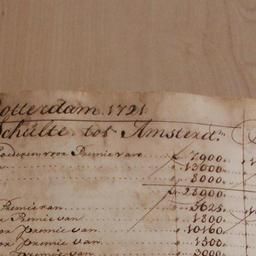 otterdam 1721
Schulte tot Amsterd:
voor Premie van f 7900
13000
f 8000
f 28900
Premie van 3625
Premie van 1800
Premie van 10160
Premie van 1500
Premie van 3000